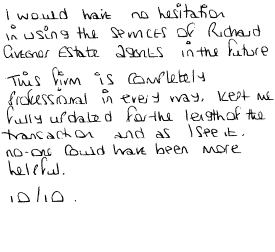 I would have no hesitation
in using the services of Richard
Greener Estate Agents in the future
This firm is completely
professional in every way, kept me
fully updated for the length of the
transaction and as I see it.
no-one could have been more
helpful.
10/10.